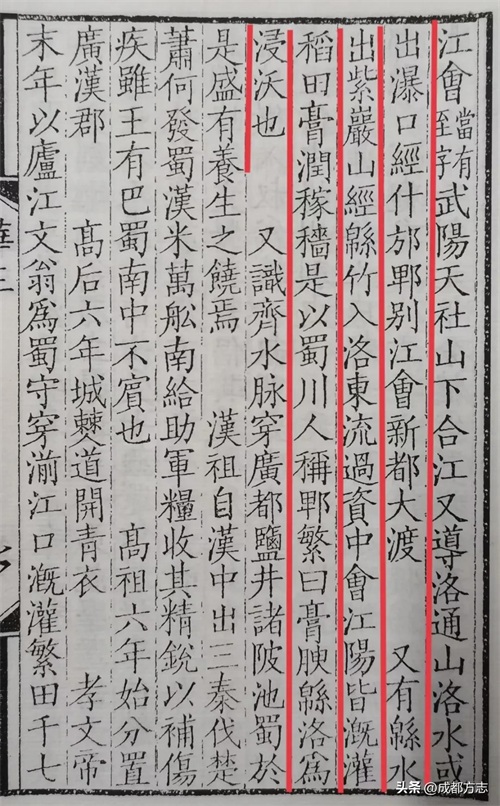 江會當有至字武陽天社山下合江又導洛通山洛水或
出瀑口經什邡郫別江會新都大渡　又有緜水
出紫巖山經緜竹入洛東流過資中會江陽皆漑灌
稻田膏潤稼穡是以蜀川人稱郫繁曰膏腴緜洛爲
浸沃也　又識齊水脉穿廣都鹽井諸陂池蜀於
是盛有養生之饒焉　漢祖自漢中出三秦伐楚
蕭何發蜀漢米萬舩南給助軍糧收其精銳以補傷
疾雖王有巴蜀南中不賓也　髙祖六年始分置
廣漢郡　髙后六年城僰道開青衣　孝文帝
末年以廬江文翁爲蜀守穿湔江口漑灌繁田千七
头条 @成都方志